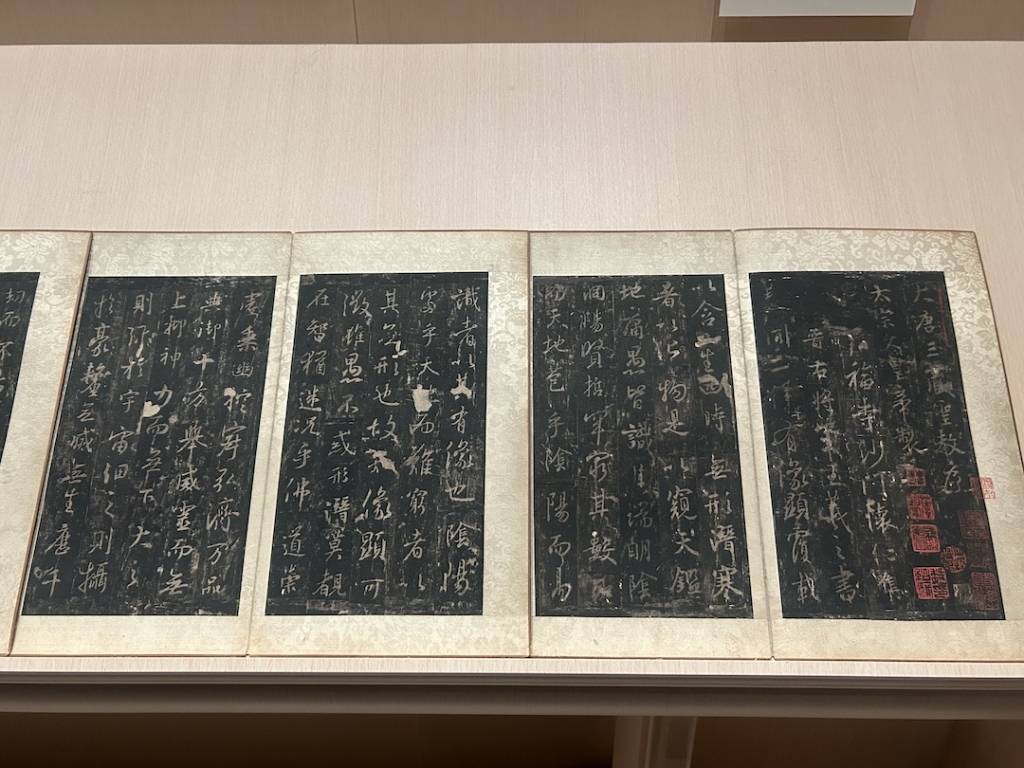 大唐三聖教序
太宗皇帝製
福寺沙門懷仁集
晉右將軍王羲之書
蓋聞二儀有像顯覆載
以含生四時無形潛寒
暑以化物是以窺天鑑
地庸愚皆識其端明陰
洞陽賢哲罕窮其數然
而天地苞乎陰陽而易
識者以其有像也陰陽
處乎天而難窮者以
其無形也故知像顯可
徵雖愚不惑形潛莫覩
在智猶迷況乎佛道崇
虛乘幽控寂弘濟萬品
典御十方舉威靈而無
上抑神力而無下大之
則彌於宇宙細之則攝
於豪釐無滅無生歷千
劫而不